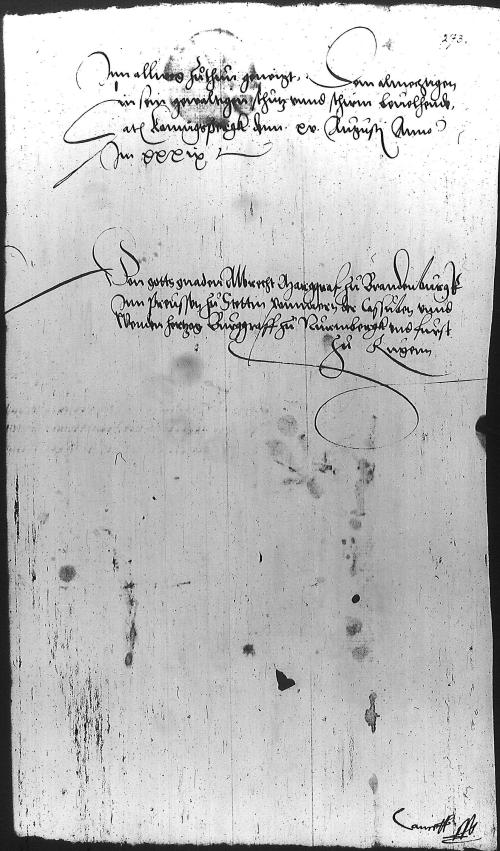 273.
Inn allweg zuthun geneigt. Dem almechtigen
in sein gewaltigen schutz unnd schirm bevelhende.
Dat Konnigspergk denn xv. Augusti Anno
Im xxxix
Von gotts gnaden Albrecht Marggraf zu Brandenburgk
Inn Preussen zu Stettin Pommern der Cassuben unnd
Wenden hertzog Burggraff zu Nurmbergk und furst
zu Rugenn